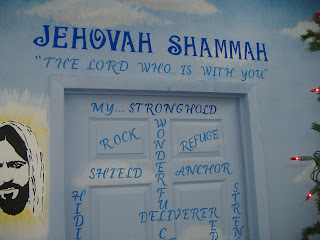 JEHOVAH SHAMMAH
"THE LORD WHO IS WITH YOU"
MY... STRONGHOLD
ROCK
WONDERFUL C
REFUGE
SHIELD
ANCHOR
HIDI
DELIVERER
STREN
RED